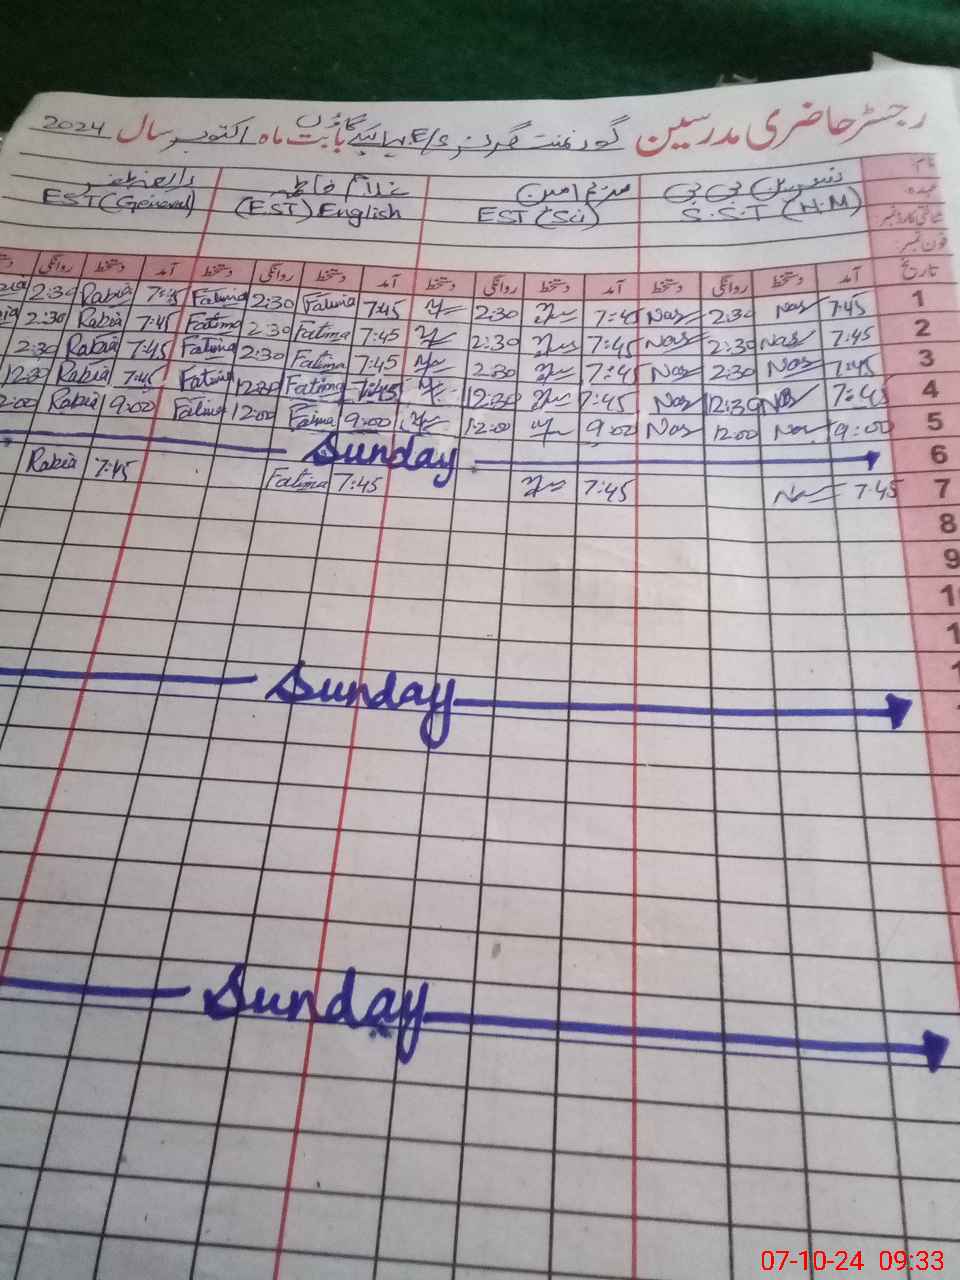 رجسٹر حاضری مدرسین گورنمنٹ گرلز E/S بابت ماہ اکتوبر سال 2024
نام: نسرین بی بی مریم امین غلام فاطمہ
عہدہ: S.S.T (H.M) EST (Sci) (EST) English EST (General)
شناختی کارڈ نمبر:
فون نمبر:
تاریخ آمد دستخط روانگی دستخط آمد دستخط روانگی دستخط آمد دستخط روانگی دستخط آمد دستخط روانگی
1 7:45 Nas 2:30 Nas 7:45 2:30 7:45 Fatima 2:30 Fatima 7:45 Rabia 2:30
2 7:45 Nas 2:30 Nas 7:45 2:30 7:45 Fatima 2:30 Fatima 7:45 Rabia 2:30
3 7:45 Nas 2:30 Nas 7:45 2:30 7:45 Fatima 2:30 Fatima 7:45 Rabia 2:30
4 7:45 Nas 12:30 Nas 7:45 12:30 7:45 Fatima 12:30 Fatima 7:45 Rabia 12:30
5 9:00 Nas 12:00 Nas 9:00 12:00 9:00 Fatima 12:00 Fatima 9:00 Rabia 12:00
6 Sunday
7 7:45 Nas 7:45 7:45 Fatima 7:45 Rabia
8
9
Sunday
Sunday
07-10-24 09:33